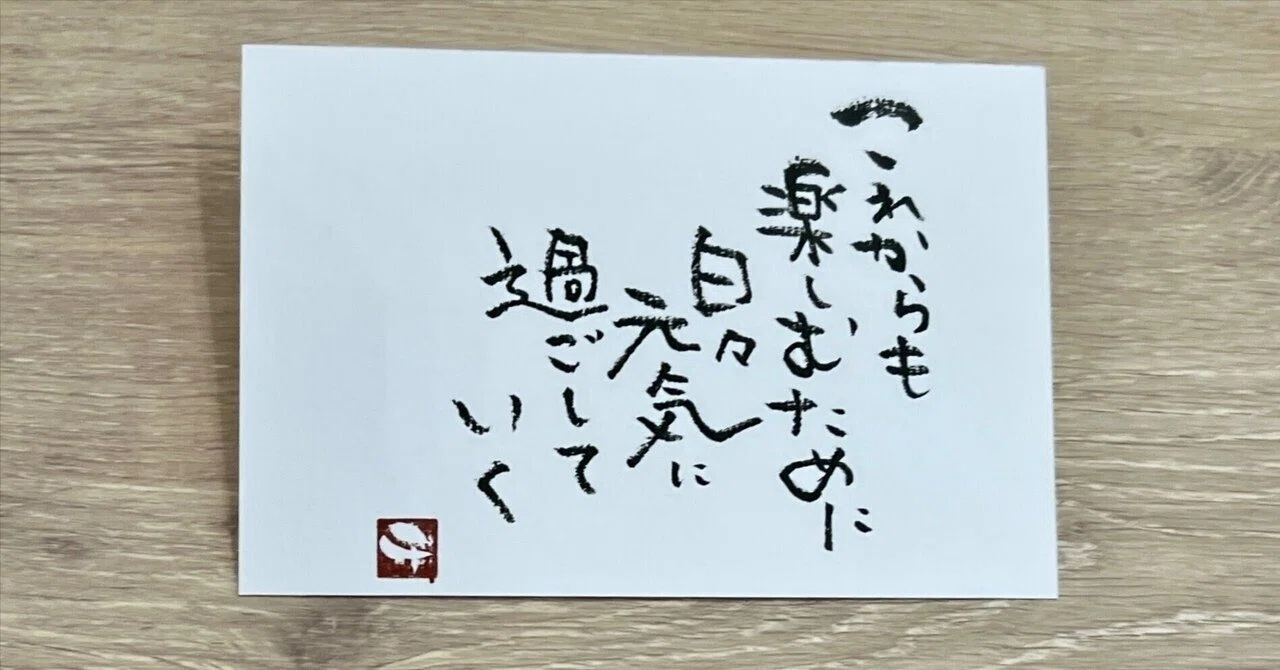 これからも
楽しむために
日々
元気に
過ごして
いく